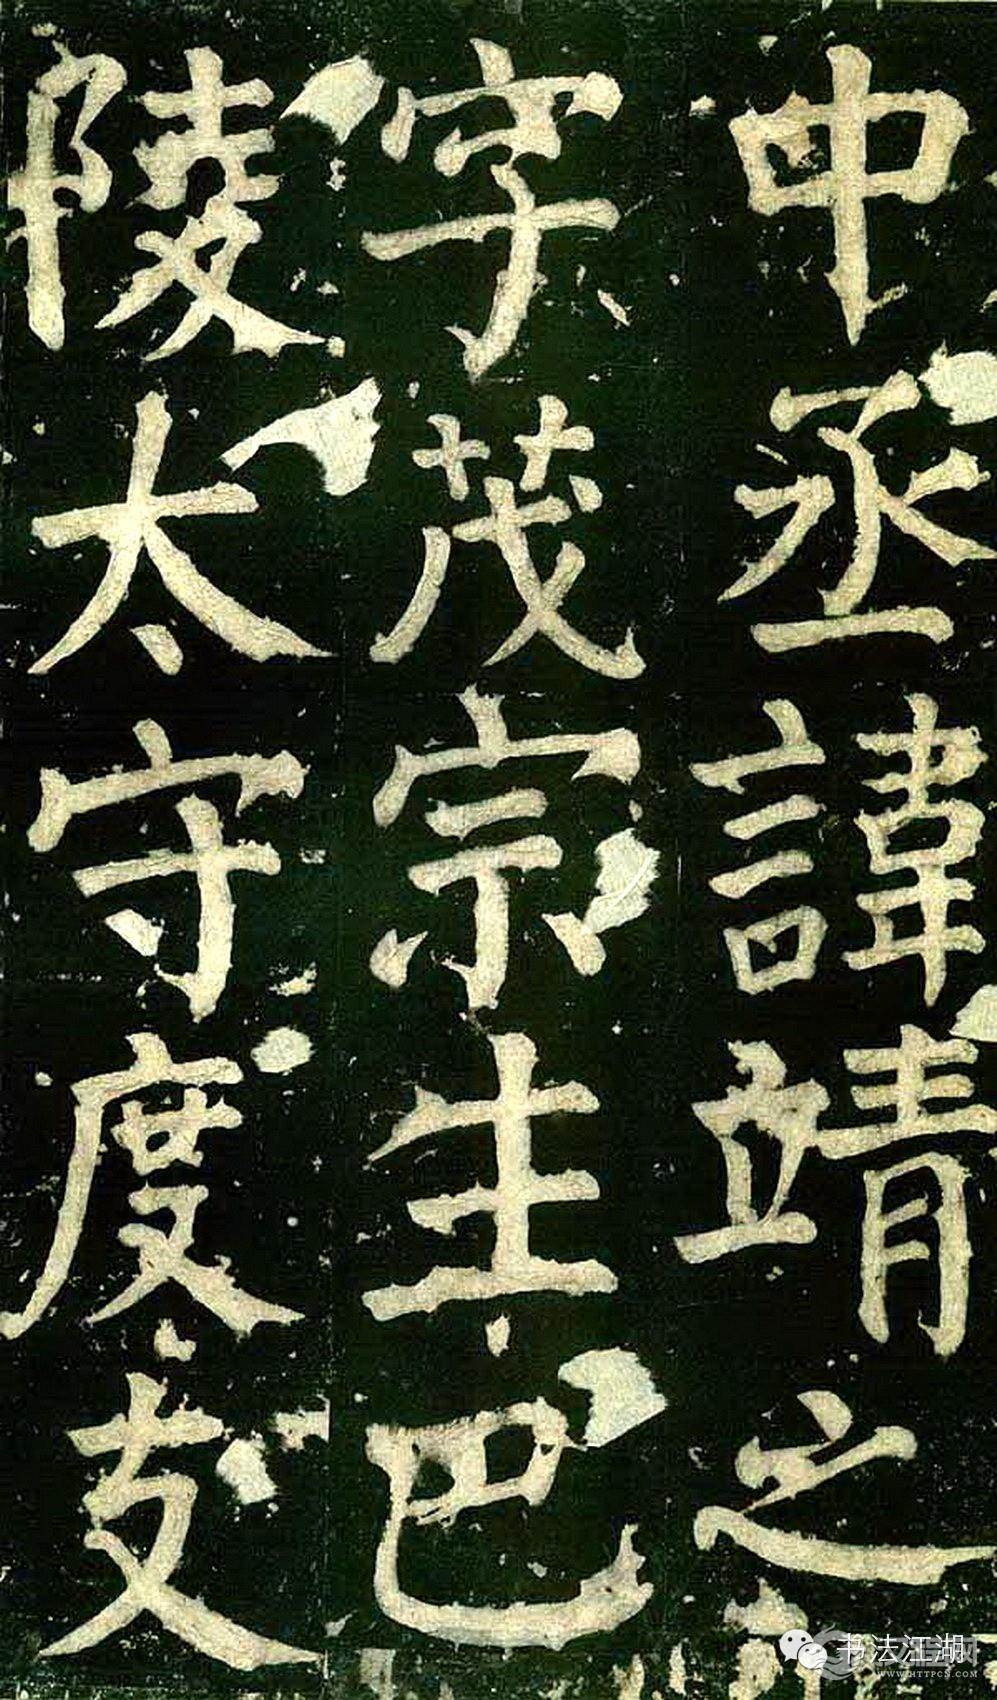 中丞諱靖之
字茂宗生巴
陵太守度支
书法江湖
WWW.HTTPCN.COM